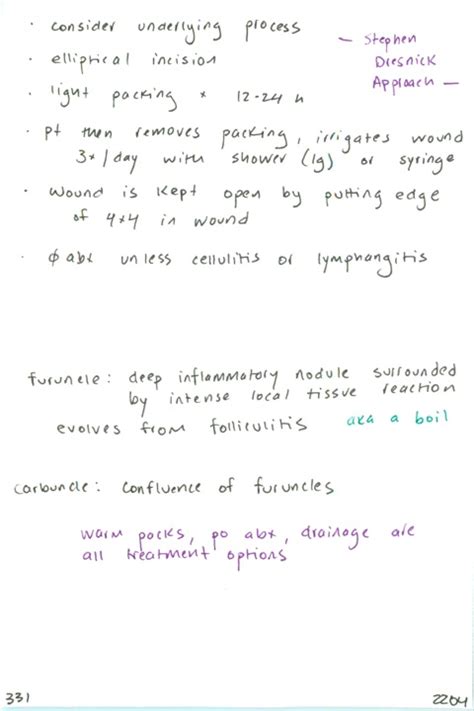 · consider underlying process
· elliptical incision
— Stephen
Dresnick
Approach —
· light packing × 12-24 h
· pt then removes packing, irrigates wound
3×/day with shower (lg) or syringe
· wound is kept open by putting edge
of 4×4 in wound
· ϕ abx unless cellulitis or lymphangitis
furuncle: deep inflammatory nodule surrounded
by intense local tissue reaction
evolves from folliculitis aka a boil
carbuncle: confluence of furuncles
warm packs, po abx, drainage are
all treatment options
331
2204